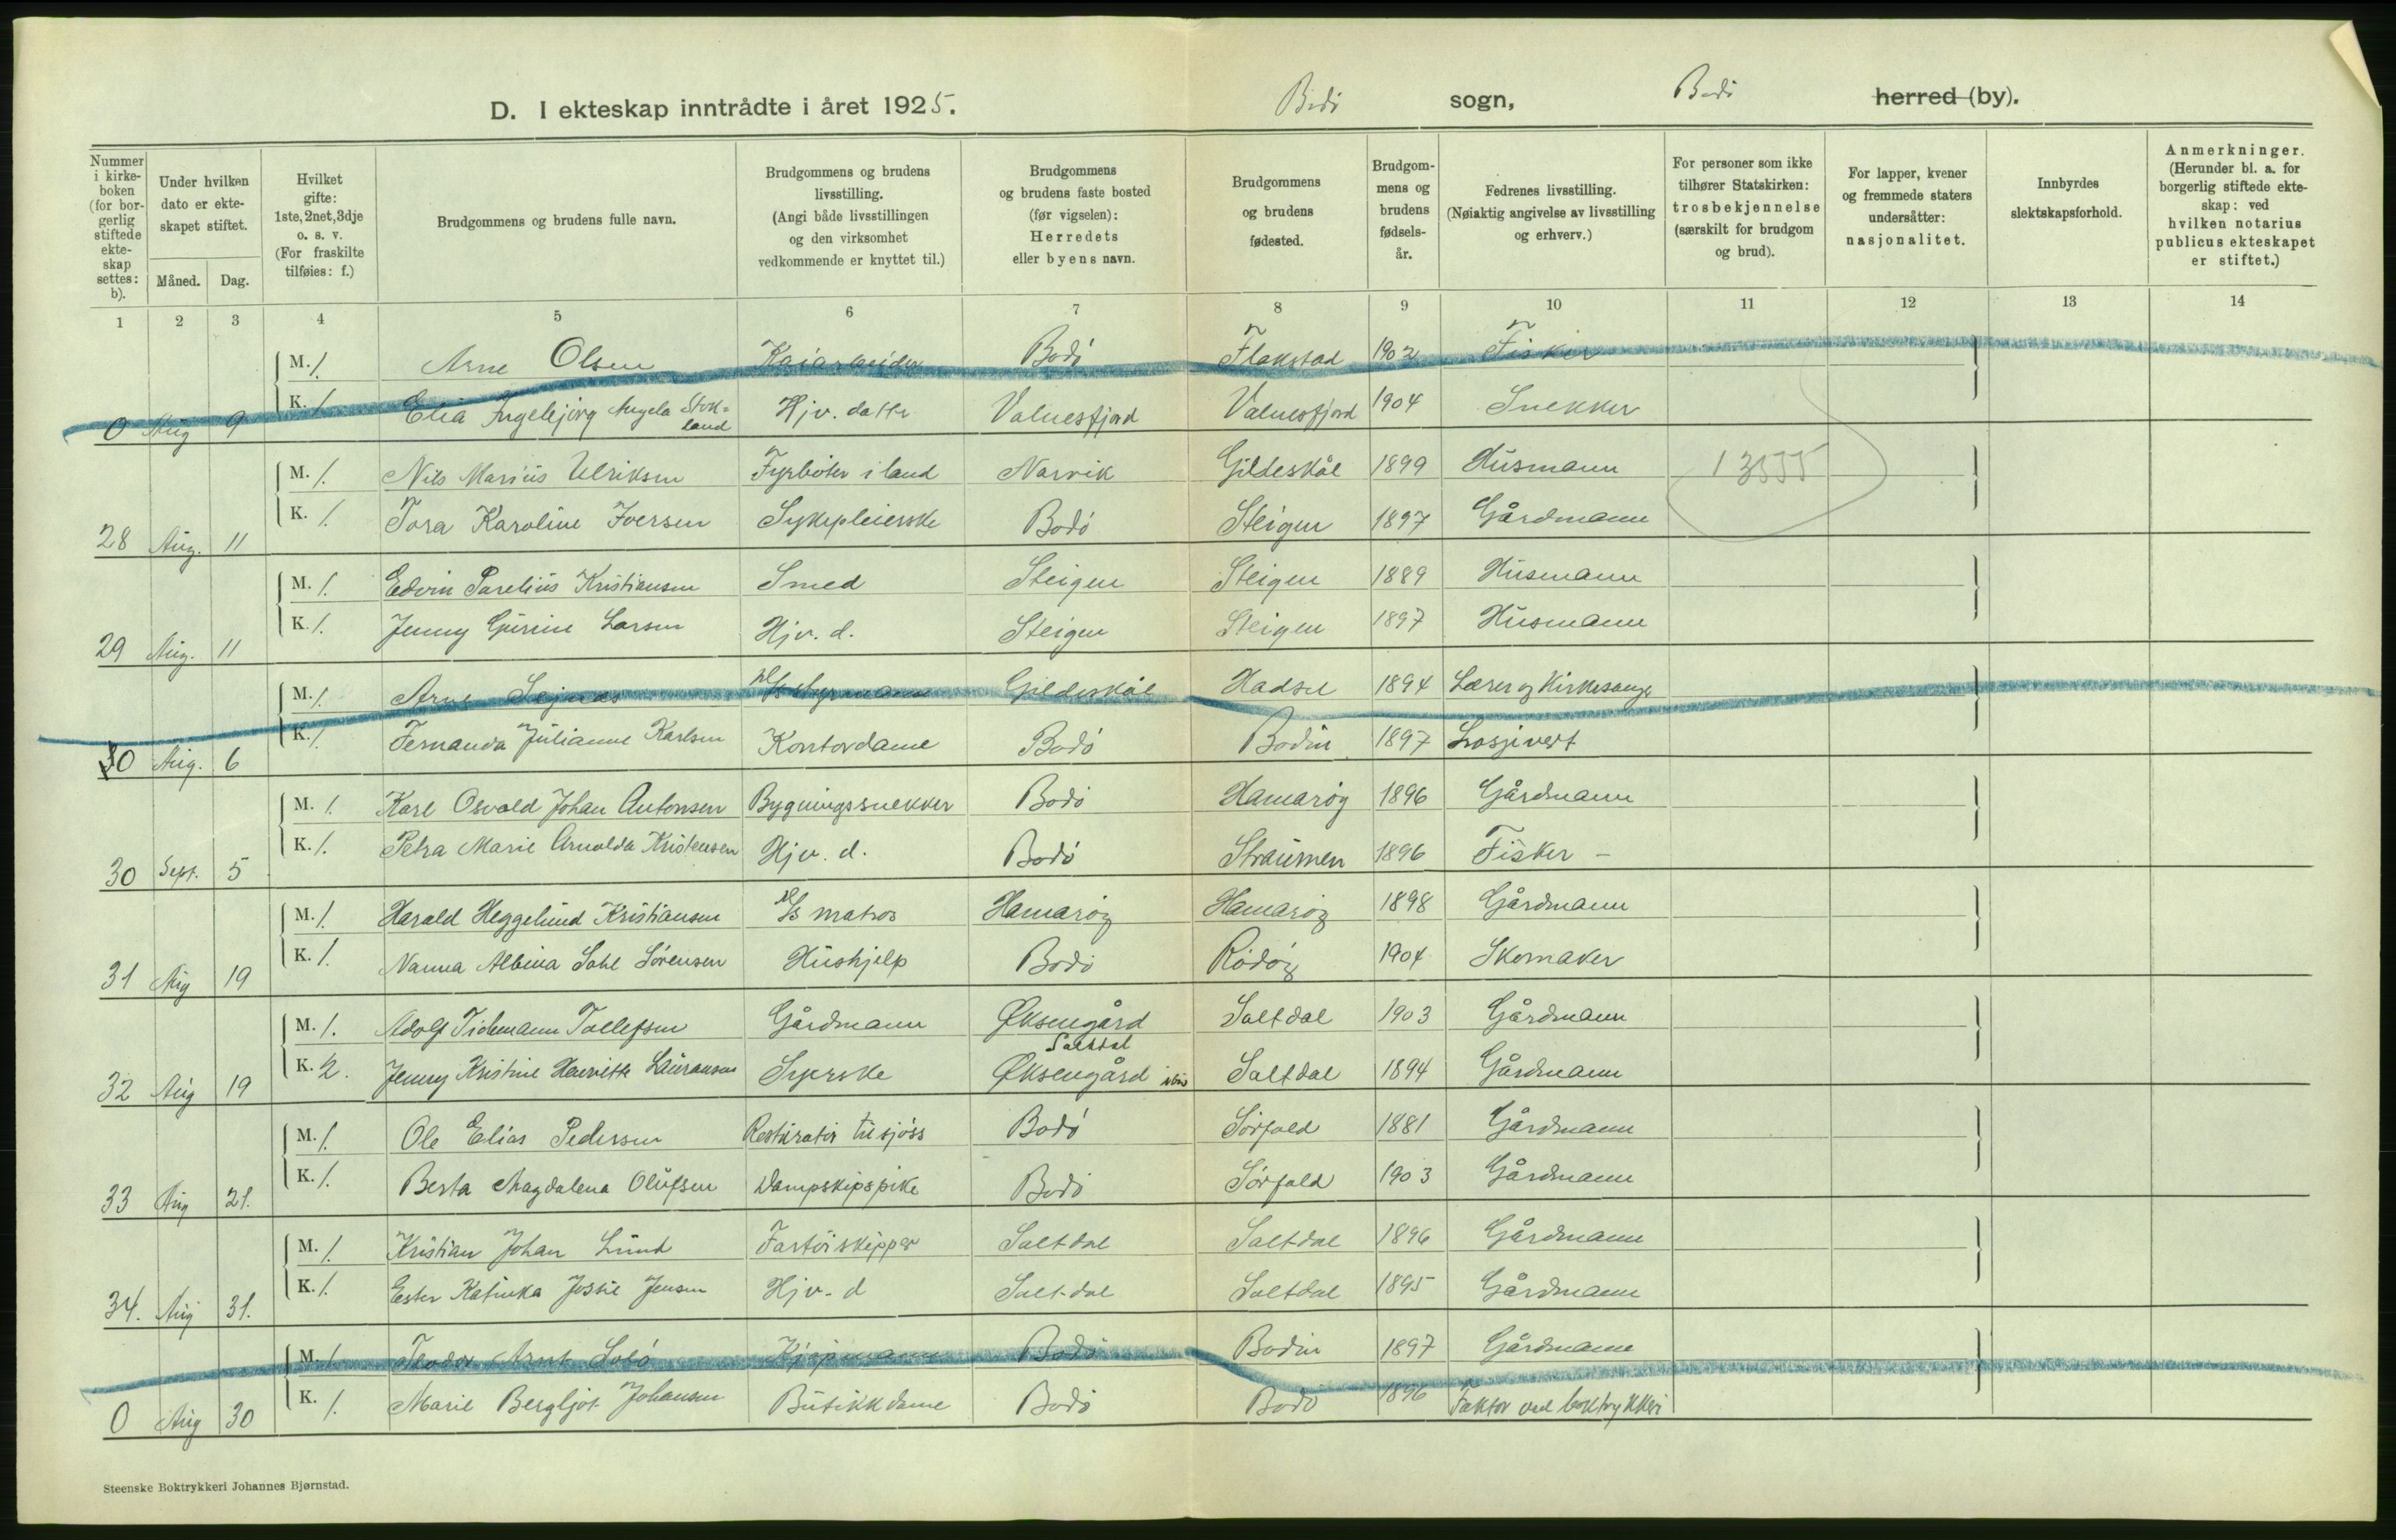 D. I ekteskap inntrådte i året 1925.
Bodø sogn, Bodø herred (by).
Nummer i kirkeboken (for borgerlig stiftede ekteskap settes: b).
Under hvilken dato er ekteskapet stiftet.
Måned. Dag.
Hvilket gifte: 1ste, 2net, 3dje o. s. v. (For fraskilte tilføies: f.)
Brudgommens og brudens fulle navn.
Brudgommens og brudens livsstilling. (Angi både livsstillingen og den virksomhet vedkommende er knyttet til.)
Brudgommens og brudens faste bosted (før vigselen): Herredets eller byens navn.
Brudgommens og brudens fødested.
Brudgommens og brudens fødselsår.
Fedrenes livsstilling. (Nøiaktig angivelse av livsstilling og erhverv.)
For personer som ikke tilhører Statskirken: trosbekjennelse (særskilt for brudgom og brud).
For lapper, kvener og fremmede staters undersåtter: nasjonalitet.
Innbyrdes slektskapsforhold.
Anmerkninger. (Herunder bl. a. for borgerlig stiftede ekteskap: ved hvilken notarius publicus ekteskapet er stiftet.)
1 2 3 4 5 6 7 8 9 10 11 12 13 14
M. 1. Arne Olsen Kaiarbeider Bodø Flakstad 1902 Fisker
K. 1. Elia Ingebjørg Angela Stokland Hjv. datter Valnesfjord Valnesfjord 1904 Snekker
0 Aug 9
M. 1. Nils Marius Ulriksen Fyrbøter i land Narvik Gildeskål 1899 Husmann 13555
K. 1. Tora Karoline Iversen Sykepleierske Bodø Steigen 1897 Gårdmann
28 Aug. 11
M. 1. Edvin Parelius Kristiansen Smed Steigen Steigen 1889 Husmann
K. 1. Jenny Gurine Larsen Hjv. d. Steigen Steigen 1897 Husmann
29 Aug. 11
M. 1. Arne Sejnæs styrmann Gildeskål Hadsel 1894 Lærer og Kirkesanger
K. 1. Fernanda Julianne Karlsen Kontordame Bodø Bodin 1897 Losjivert
0 Aug. 6
M. 1. Karl Osvald Johan Antonsen Bygningssnekker Bodø Hamarøy 1896 Gårdmann
K. 1. Petra Marie Arnolda Kristensen Hjv. d. Bodø Straumen 1896 Fisker -
30 Sept. 5
M. 1. Harald Heggelund Kristiansen D/s matros Hamarøy Hamarøy 1898 Gårdmann
K. 1. Nanna Albina Dahl Sørensen Hushjelp Bodø Rødøy 1904 Skomaker
31 Aug 19
M. 1. Adolf Tidemann Tollefsen Gårdmann Øksengård Saltdal Saltdal 1903 Gårdmann
K. 2. Jenny Kristine Henriette Lauransen Syerske Øksengård Saltdal 1894 Gårdmann
32 Aug 19
M. 1. Ole Elias Pedersen Restauratør til sjøss Bodø Sørfold 1881 Gårdmann
K. 1. Berta Magdalena Olufsen Dampskipspike Bodø Sørfold 1903 Gårdmann
33 Aug 21.
M. 1. Kristian Johan Lund Fartøiskipper Saltdal Saltdal 1896 Gårdmann
K. 1. Ester Katinka Josfie Jensen Hjv. d Saltdal Saltdal 1895 Gårdmann
34. Aug 31.
M. 1. Teodor Arnt Løbø Kjøpmann Bodø Bodin 1897 Gårdmann
K. 1. Marie Bergljot Johansen Butikkdame Bodø Bodø 1896 Faktor ved boktrykkeri
0 Aug 30
Steenske Boktrykkeri Johannes Bjørnstad.